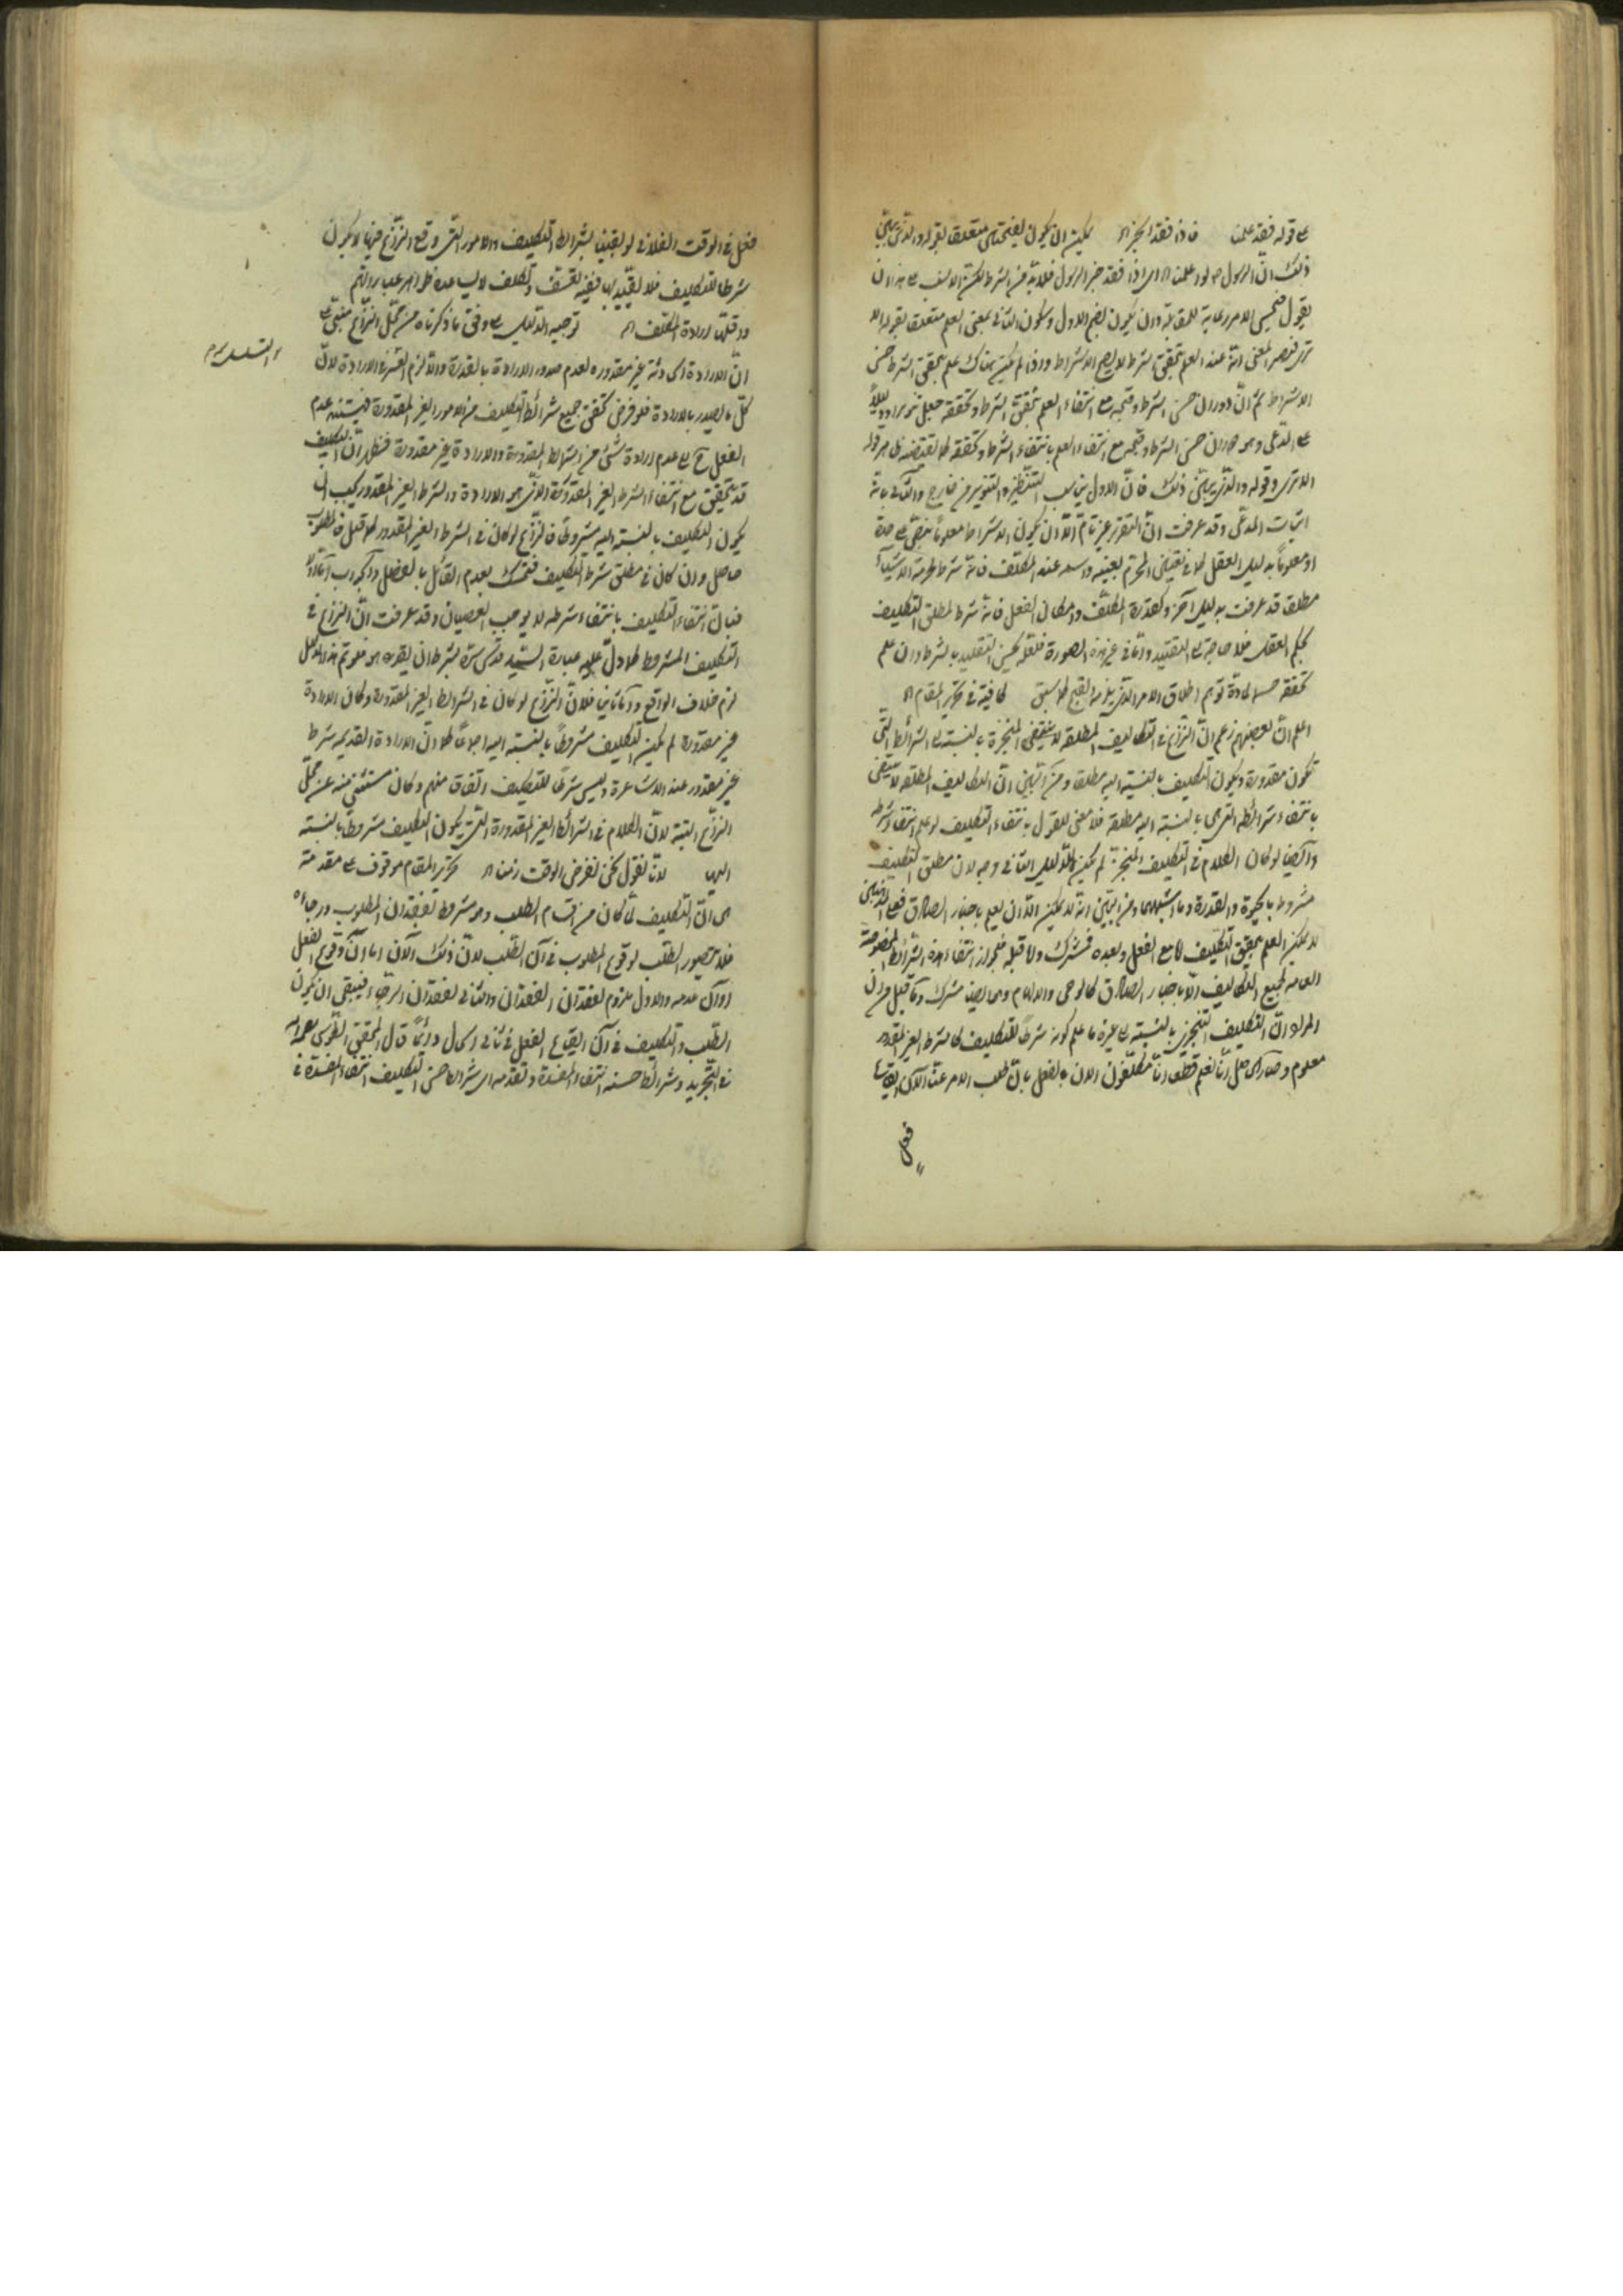 على قوله فقد علمنا فاذا فقد الخبر اه يمكن ان يكون بفتحتين متعلقا بقوله والذي يبين
ذلك انّ الرسول لو اعلمنا اه اى اذا فقد خبر الرسول فلا بدّ من الشرط لكن الانسب على هذا ان
يقول فيحسن الامر رعاية للمقابلة وان يكون بضم الاول وسكون الثاني بمعنى العلم متعلقا بقوله الا
ترى فيصير المعنى انه عند العلم بتحقق الشرط لا يصح الاشتراط واذا لم يكن هناك علم بتحقق الشرط حسن
الاشتراط ثم انّ دوران حسن الشرط وقبحه مع انتفاء العلم بتحقق الشرط وتحققه جعل تنويرا ودليلا
على المدّعى وهو دوران حسن الشرط وقبحه مع انتفاء العلم بانتفاء الشرط وتحققه كما يقتضيه ظاهر قوله
الا ترى وقوله والذي يبين ذلك فانّ الاول يناسب التنظير والتنوير من خارج والثاني بانه
اثبات المدّعى وقد عرفت انّ التقرير غير تام الّا ان يكون الاشتراط معلوما بنصّ على حدة
او معلوما بدليل العقل كما في تعيين المحرم بعينه واسمه عند المكلف فانه شرط لحرمة الاشياء
مطلقا قد عرفت بدليل آخر وكقدرة المكلّف وامكان الفعل فانه شرط لمطلق التكليف
بحكم العقل فلا حاجة الى التقييد وامّا في غير هذه الصورة فلعله يحسن التقييد بالشرط وان علم
تحققه حسما لمادة توهم اطلاق الامر الذي يلزمه القبح كما سبق كافية في تحرير المقام اه
اعلم انّ بعضهم زعم انّ النزاع في التكاليف المطلقة المنجزة بالنسبة الى الشرائط التي
تكون مقدورة ويكون التكليف بالنسبة اليه مطلقا ومن البيّن انّ التكاليف المطلقة لا تنتفي
بانتفاء شرائطه التي هي بالنسبة اليه مطلقة فلا معنى للقول بانتفاء التكليف لو علم انتفاء شرطه
وايضا لو كان الكلام في التكليف المنجز لم يكن للدليل الثاني وجه لان مطلق التكليف
مشروط بالحيوة والقدرة وما اشبهها ومن البيّن انه لا يمكن الّا ان يعلم باخبار الصادق فعلى
لا يمكن العلم بتحقق التكليف لا مع الفعل وبعده فمشترك ولا قبله فلجواز انتفاء هذه الشرائط المخصوصة
العامة لجميع التكاليف الّا باخبار الصادق كالوحي والالهام وهما ايضا مشترك وما قيل من ان
المراد انّ التكليف التنجيزي بالنسبة الى غيره ما علم كونه شرطا للتكليف كالشرط الغير المقدور
معلوم وحاصل انّا نعلم قطعا انّا مكلّفون الان بالفعل بان طلب الامر عنّا الآن ايقاع
فعل
فعل في الوقت الفلاني لو بقينا بشرائط التكليف والامور التي وقع النزاع فيها لا يكون
شرطا للتكليف فلا تقييد بها ففيه تعسف وتكلف لا يساعده ظواهر عباراتهم
واقلّها ارادة المكلف اه توجيه الدليل على وفق ما ذكرناه من محلّ النزاع مبنيّ على
انّ الارادة الحادثة غير مقدورة لعدم صدور الارادة بالقدرة والا لزم التسلسل في الارادة لان
التسلسل
كلّ ما يصدر بالارادة فلو فرض تحقق جميع شرائط التكليف من الامور الغير المقدورة فيستند عدم
الفعل ح الى عدم ارادة شيء من الشرائط المقدورة والارادة غير مقدورة فظهر انّ التكليف
قد يتحقق مع انتفاء الشرط الغير المقدور الذي هو الارادة والشرط الغير المقدور يجب ان
يكون التكليف بالنسبة اليه مشروطا فالنزاع لو كان في الشرط الغير المقدور كما قيل فالمطلوب
حاصل وان كان في مطلق شرط التكليف فتمسك بعدم القائل بالفصل والجواب امّا اوّلا
فبانّ انتفاء التكليف بانتفاء شرطه لا يوجب العصيان وقد عرفت انّ النزاع في
التكليف المشروط كما دلّ عليه عبارة السيّد قدس سرّه بشرط ان يقدره هو فلو تم هذا الدليل
لزم خلاف الواقع وامّا ثانيا فلانّ النزاع لو كان في الشرائط الغير المقدورة وكان الارادة
غير مقدورة لم يكن التكليف مشروطا بالنسبة اليه اجماعا كما انّ الارادة القديمة شرط
غير مقدور عند الاشاعرة وليس شرطا للتكليف اتفاقا منهم وكان مستثنى منه عن محلّ
النزاع البتة لانّ الكلام في الشرائط الغير المقدورة التي يكون التكليف مشروطا بالنسبة
اليها لانّا نقول نحن نفرض الوقت زمنا اه تحرير المقام موقوف على مقدمة
هي انّ التكليف لمّا كان من اقسام الطلب وهو مشروط بفقدان المطلوب ورجاءه
فلا يتصور الطلب لوقوع المطلوب في آن الطلب لانّ ذلك الآن اما آن وقوع الفعل
او آن عدمه والاول ملزوم لفقدان الفقدان والثاني لفقدان الرجاء فينبغي ان يكون
الطلب والتكليف في آن ايقاع الفعل في ثاني الحال دائما قال المحقق الطوسي رحمه الله
في التجريد وشرائط حسنه انتفاء المفسدة وتقدمه اى شرائط حسن التكليف انتفاء المفسدة في